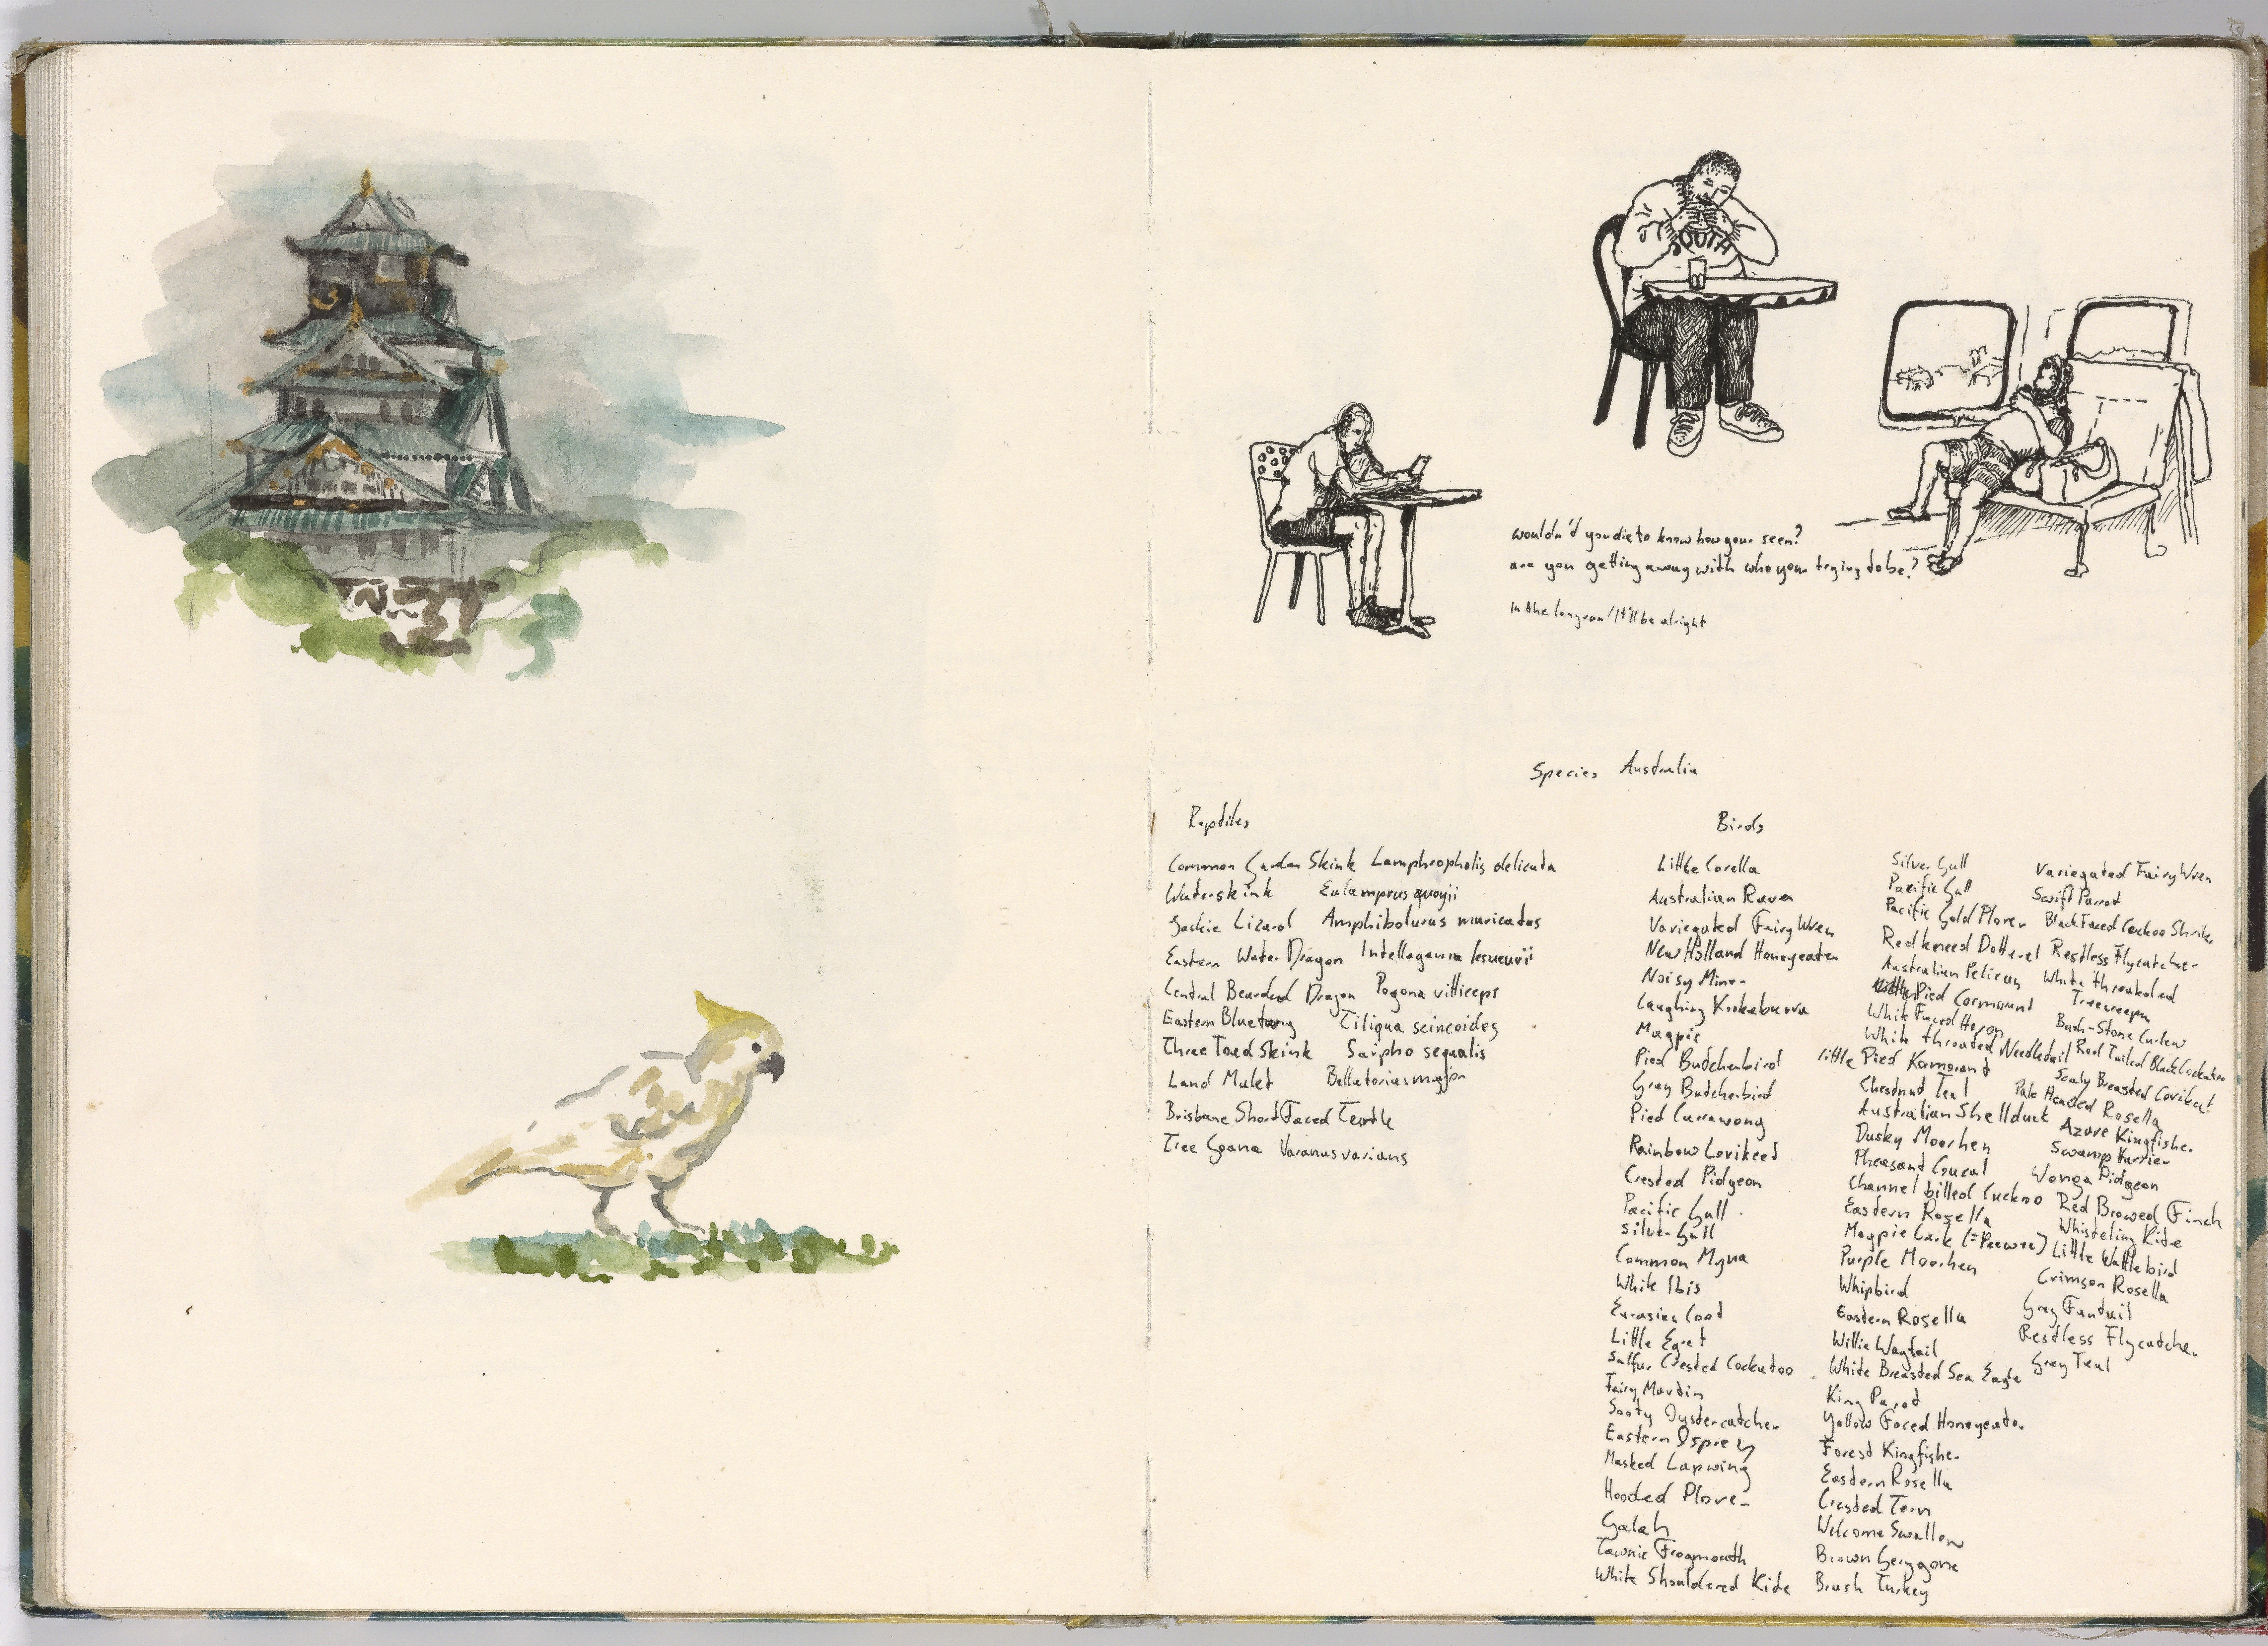 SOUTH
wouldn'd you die to know how your seen?
are you getting away with who your trying to be?
In the longrun / It'll be alright
Species Australia
Reptiles
Common Garden Skink Lamphropholis delicata
Waterskink Eulamprus quoyii
Jackie Lizard Amphibolurus muricatus
Eastern Water Dragon Intellagama lesueurii
Central Bearded Dragon Pogona vitticeps
Eastern Bluetong Tiliqua scincoides
Three Toed Skink Saipho sequalis
Land Mulet Bellatorias major
Brisbane Short Faced Turtle
Tree Goana Varanus varians
Birds
Little Corella
Australian Raven
Variegated Fairy Wren
New Holland Honeyeater
Noisy Miner
Laughing Kookaburra
Magpie
Pied Butcherbird
Grey Butcherbird
Pied Currawong
Rainbow Lorikeet
Crested Pidgeon
Pacific Gull
Silver Gull
Common Myna
White Ibis
Eurasian Coot
Little Egret
Sulfur Crested Cockatoo
Fairy Martin
Sooty Oystercatcher
Eastern Osprey
Masked Lapwing
Hooded Plover
Galah
Tawnie Frogmouth
White Shouldered Kite
Silver Gull
Pacific Gull
Pacific Gold Plover
Red kneed Dotterel
Australian Pelican
Pied Cormorant
White Faced Heron
White throated Needletail
little Pied Kormorant
Chestnut Teal
Australian Shellduck
Dusky Moorhen
Pheasant Coucal
Channel billed Cuckoo
Eastern Rosella
Magpie Lark (=Peewee)
Purple Moorhen
Whipbird
Eastern Rosella
Willie Wagtail
White Breasted Sea Eagle
King Parrot
Yellow Faced Honeyeater
Forest Kingfisher
Eastern Rosella
Crested Tern
Welcome Swallow
Brown Gerygone
Brush Turkey
Variegated Fairy Wren
Swift Parrot
Black Faced Cuckoo Shrike
Restless Flycatcher
White throated
Treecreeper
Bush-Stone Curlew
Red Tailed Black Cockatoo
Scaly Breasted Lorikeet
Pale Headed Rosella
Azure Kingfisher
Swamp Harrier
Wonga Pidgeon
Red Browed Finch
Whisteling Kite
Little Wattlebird
Crimson Rosella
Grey Fantail
Restless Flycatcher
Grey Teal